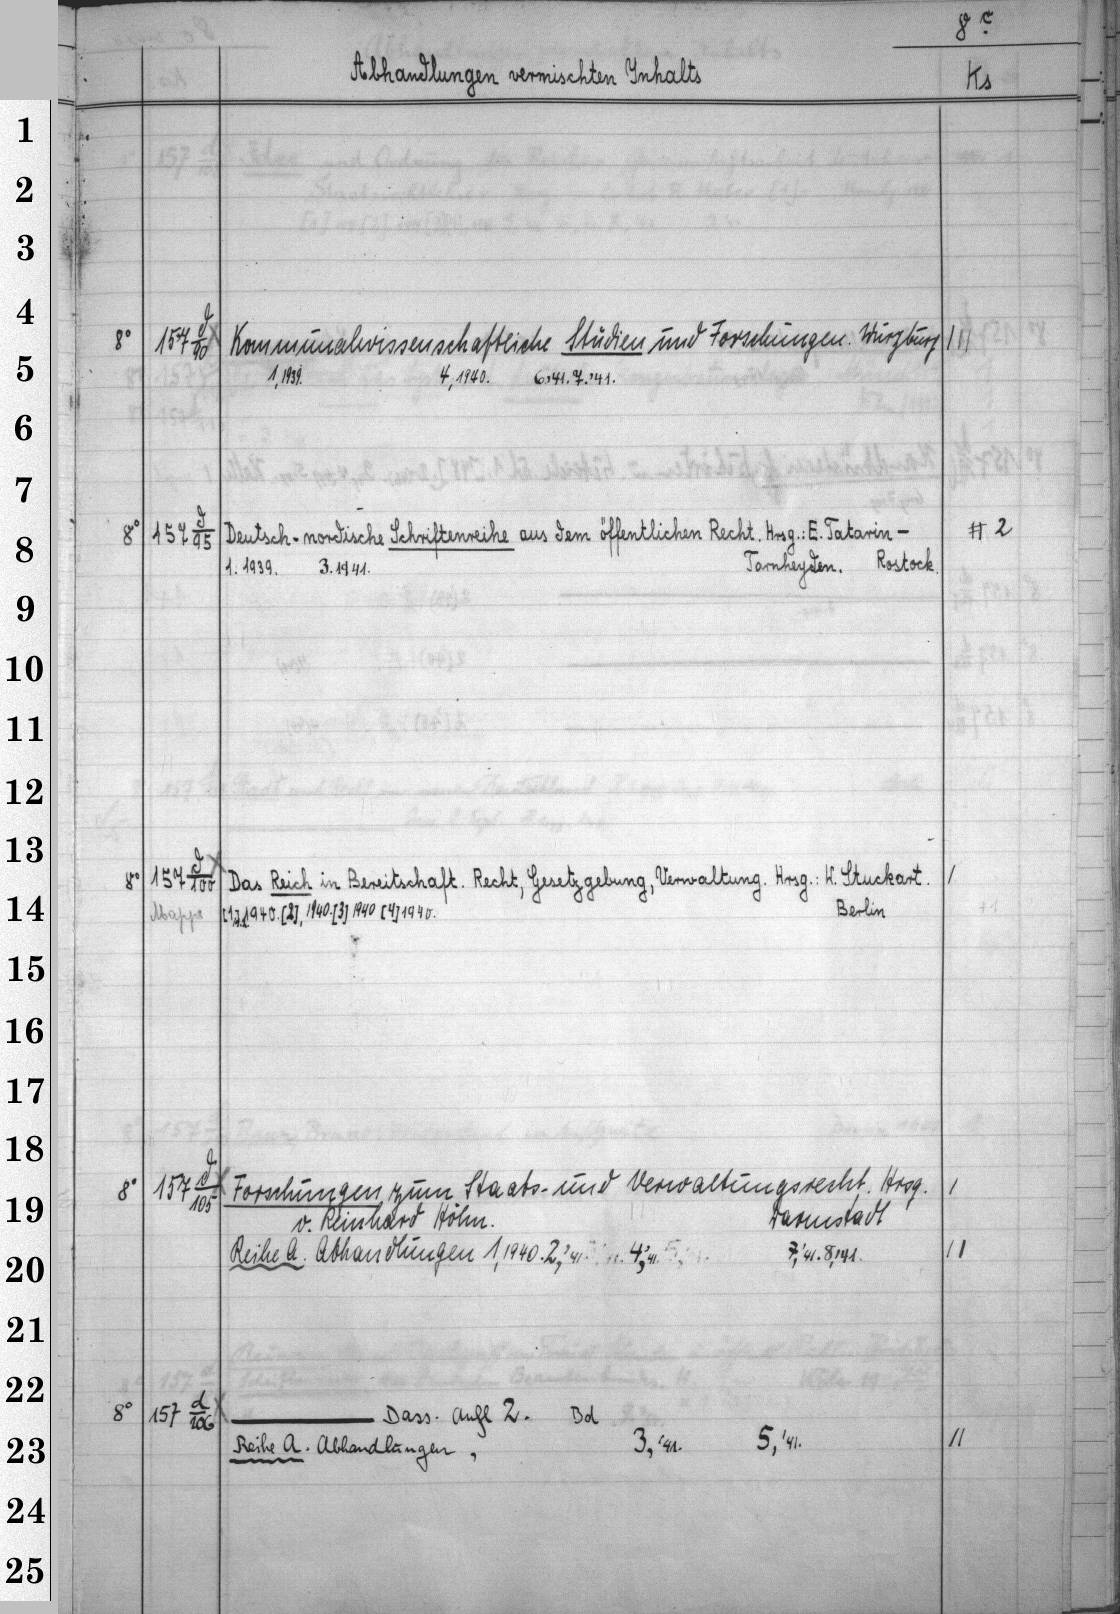 8 c
Abhandlungen vermischten Inhalts Ks
1
2
3
4
8° 157 d/90 Kommunalwissenschaftliche Studien und Forschungen. Würzburg ///
5 1,1939. 4,1940. 6,'41. 7.'41.
6
7
8° 157 d/95 Deutsch-nordische Schriftenreihe aus dem öffentlichen Recht. Hrsg.: E. Tatarin- # 2
8
1. 1939. 3.1941. Tarnheyden. Rostock.
9
10
11
12
13
8° 157 d/100 Das Reich in Bereitschaft. Recht, Gesetzgebung, Verwaltung. Hrsg.: W. Stuckart. /
14 Mappe [1.]1940.[2], 1940.[3] 1940 [4] 1940. Berlin
15
16
17
18
8° 157 d/105 Forschungen zum Staats- und Verwaltungsrecht. Hrsg. /
19 v. Reinhard Höhn. Darmstadt
20 Reihe A. Abhandlungen 1,1940. 2,'41. 4,'41. 7,'41. 8,'41. //
21
22
8° 157 d/106 Dass. Aufl 2. Bd
23 Reihe A. Abhandlungen, 3,'41. 5,'41. //
24
25